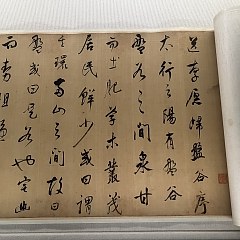 送李愿歸盤谷序
太行之陽有盤谷
盤谷之間泉甘
而土肥草木叢茂
居民鮮少或曰謂
其環兩山之間故曰
盤或曰是谷也宅幽
而勢阻隱